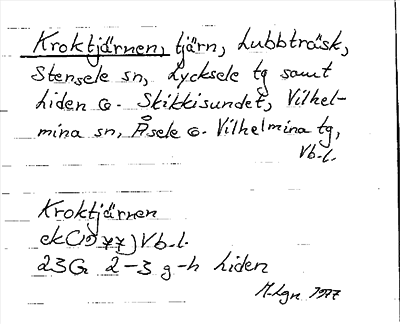 Kroktjärnen, tjärn, Lubbträsk,
Stensele sn, Lycksele tg samt
Liden o. Skikkisundet, Vilhel-
mina sn, Åsele o. Vilhelmina tg,
Vb-l.
Kroktjärnen
ek(1977) Vb-l.
23G 2-3 g-h Liden
1977